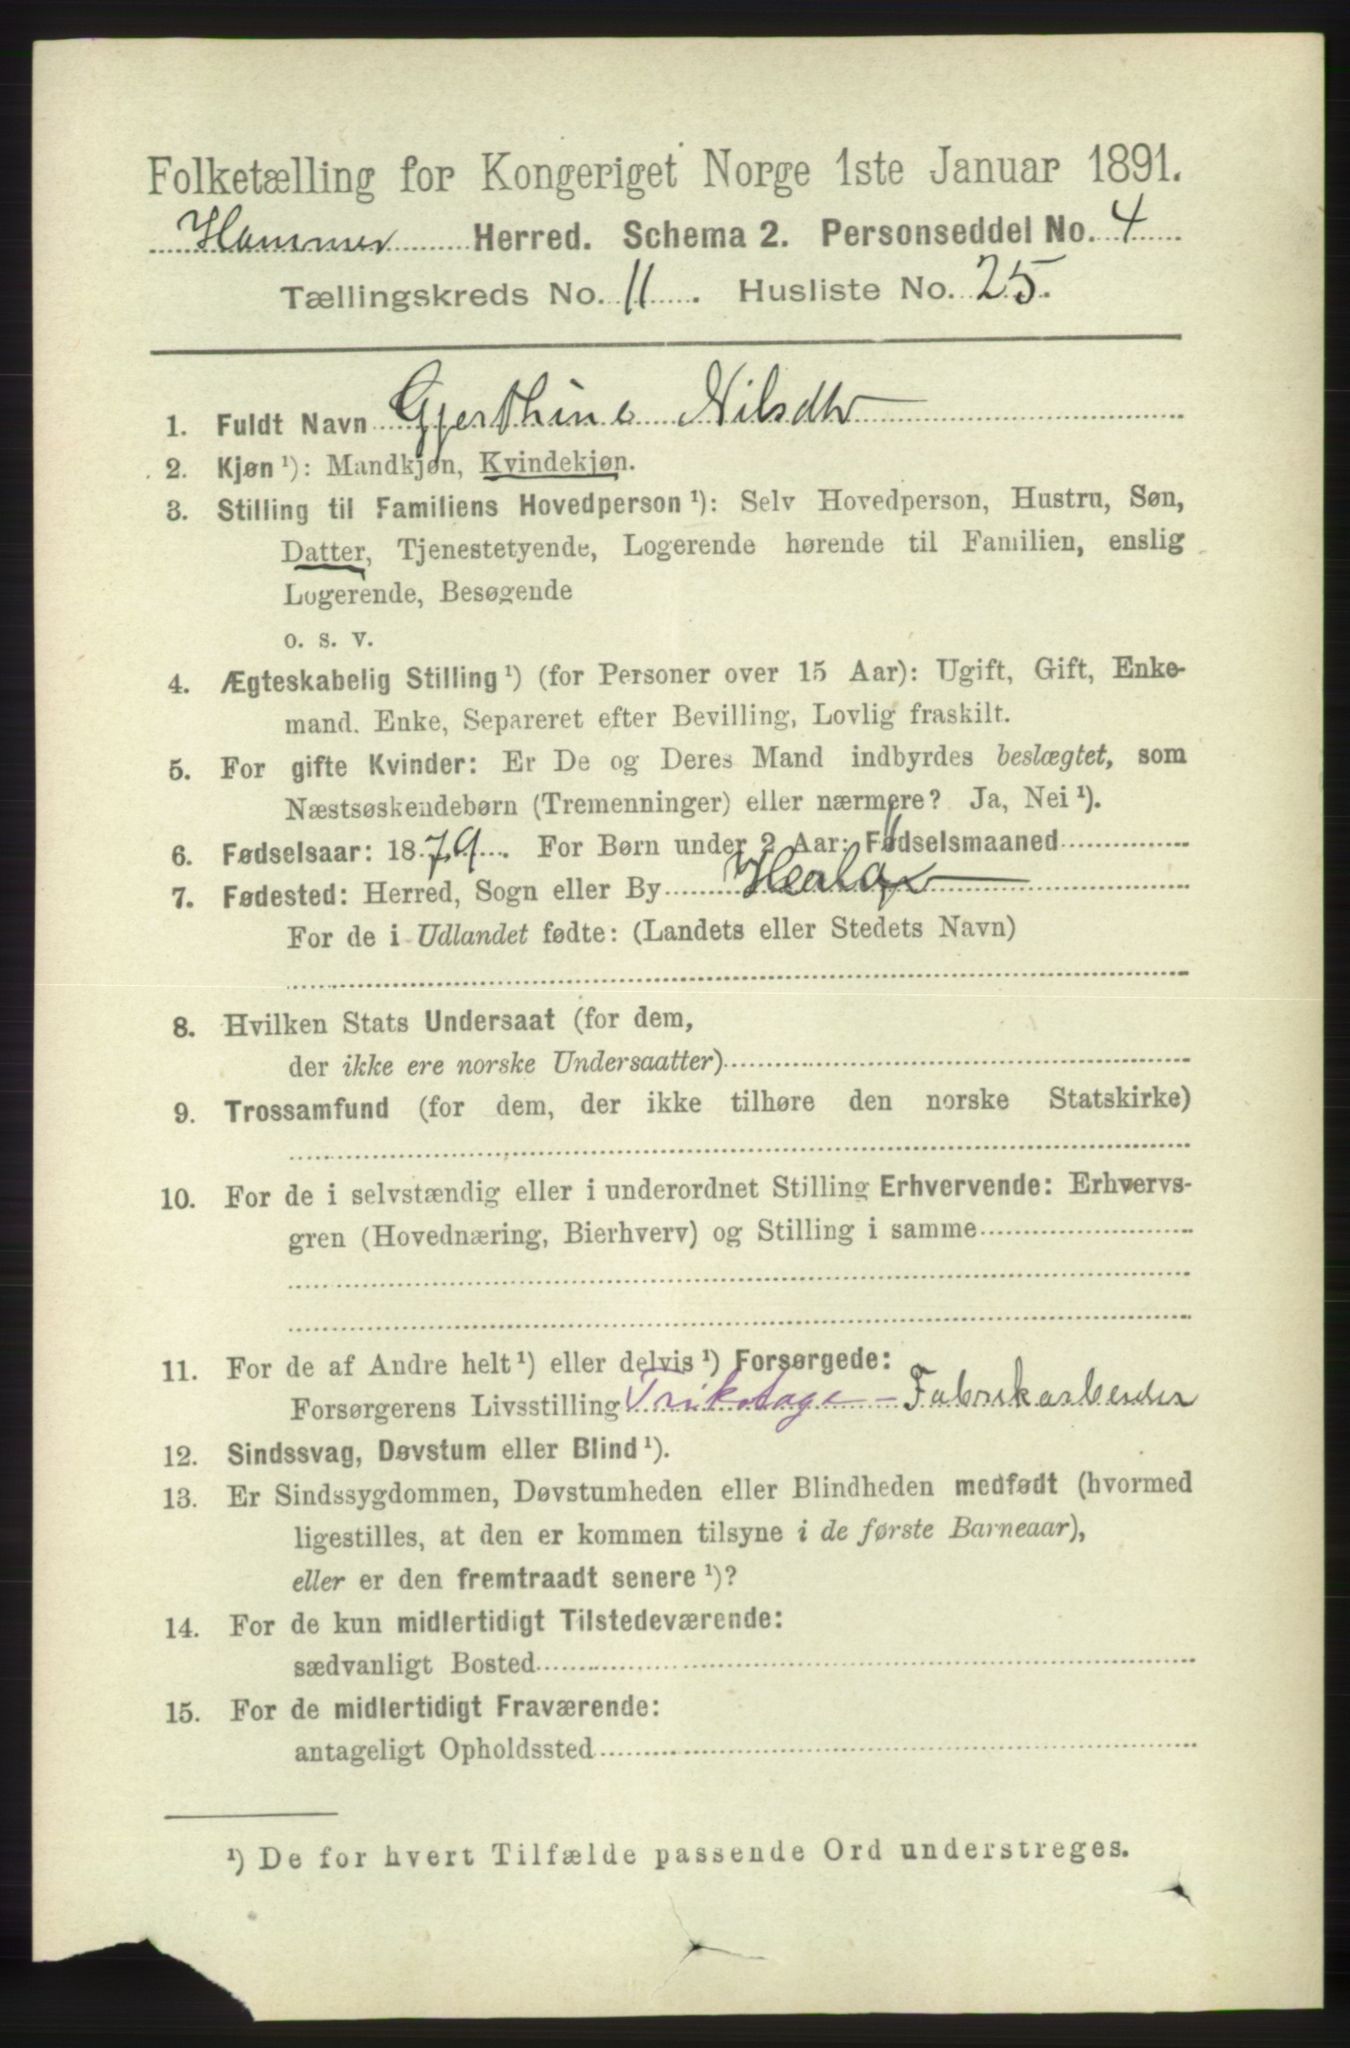 Folketælling for Kongeriget Norge 1ste Januar 1891.
Hammer Herred. Schema 2. Personseddel No. 4
Tællingskreds No. 11. Husliste No. 25.
1. Fuldt Navn Gjerthine Nilsdtr
2. Kjøn ¹): Mandkjøn, Kvindekjøn.
3. Stilling til Familiens Hovedperson ¹): Selv Hovedperson, Hustru, Søn,
Datter, Tjenestetyende, Logerende hørende til Familien, enslig
Logerende, Besøgende
o. s. v.
4. Ægteskabelig Stilling ¹) (for Personer over 15 Aar): Ugift, Gift, Enke-
mand. Enke, Separeret efter Bevilling, Lovlig fraskilt.
5. For gifte Kvinder: Er De og Deres Mand indbyrdes beslægtet, som
Næstsøskendebørn (Tremenninger) eller nærmere? Ja, Nei ¹).
6. Fødselsaar: 1879. For Børn under 2 Aar: Fødselsmaaned
7. Fødested: Herred, Sogn eller By
For de i Udlandet fødte: (Landets eller Stedets Navn)
8. Hvilken Stats Undersaat (for dem,
der ikke ere norske Undersaatter)
9. Trossamfund (for dem, der ikke tilhøre den norske Statskirke)
10. For de i selvstændig eller i underordnet Stilling Erhvervende: Erhvervs-
gren (Hovednæring, Bierhverv) og Stilling i samme
11. For de af Andre helt ¹) eller delvis ¹) Forsørgede:
Forsørgerens Livsstilling Trikotage-Fabrikarbeider
12. Sindssvag, Døvstum eller Blind ¹).
13. Er Sindssygdommen, Døvstumheden eller Blindheden medfødt (hvormed
ligestilles, at den er kommen tilsyne i de første Barneaar),
eller er den fremtraadt senere ¹)?
14. For de kun midlertidigt Tilstedeværende:
sædvanligt Bosted
15. For de midlertidigt Fraværende:
antageligt Opholdssted
¹) De for hvert Tilfælde passende Ord understreges.